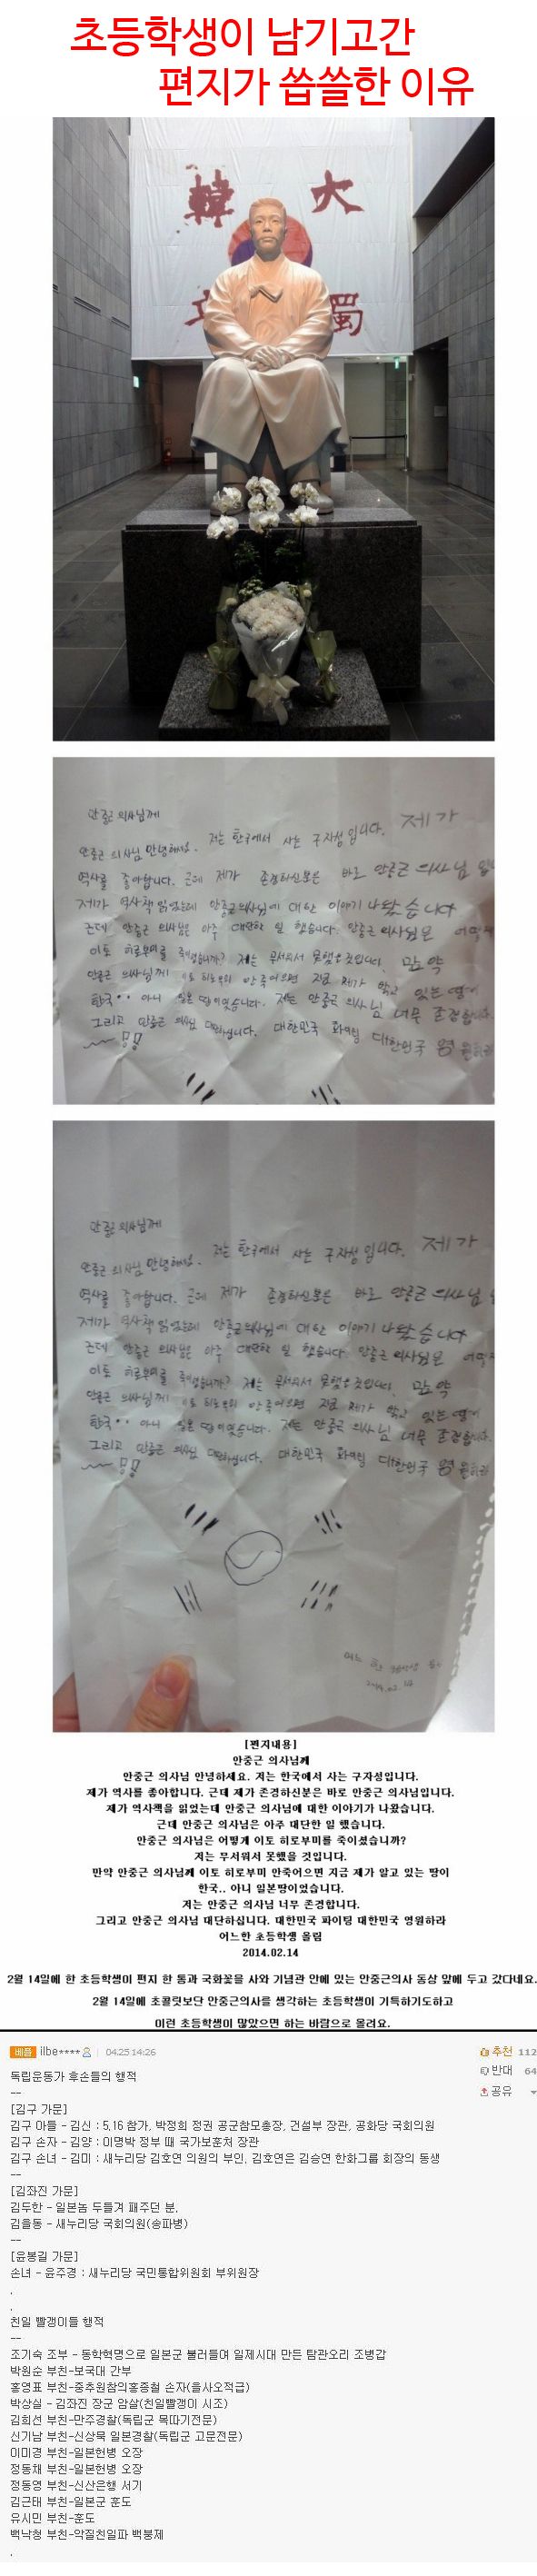 초등학생이 남기고간
편지가 씁쓸한 이유
韓 大
獨
안중근 의사님께
안중근 의사님 안녕하세요. 저는 한국에서 사는 구자성입니다. 제가
역사를 좋아합니다. 근데 제가 존경하신분은 바로 안중근 의사님
제가 역사책 읽었는데 안중근의사님에 대한 이야기 나왔습니다
근데 안중근 의사님은 아주 대단한 일 했습니다. 안중근 의사님은
이토 히로부미를 죽이셨습니까? 저는 무서워서 못했을 것입니다. 만약
안중근 의사님께 이토 히로부미 안죽어으면 지금 제가 알고 있는 땅이
한국.. 아니 일본땅이었습니다. 저는 안중근 의사님 너무 존경합니다.
그리고 안중근 의사님 대단하십니다. 대한민국 파이팅 대한민국 영원하라
안중근 의사님께
안중근 의사님 안녕하세요. 저는 한국에서 사는 구자성입니다. 제가
역사를 좋아합니다. 근데 제가 존경하신분은 바로 안중근 의사님
제가 역사책 읽었는데 안중근의사님에 대한 이야기 나왔습니다
근데 안중근 의사님은 아주 대단한 일 했습니다. 안중근 의사님은
이토 히로부미를 죽이셨습니까? 저는 무서워서 못했을 것입니다. 만약
안중근 의사님께 이토 히로부미 안죽어으면 지금 제가 알고 있는 땅이
한국.. 아니 일본땅이었습니다. 저는 안중근 의사님 너무 존경합니다.
그리고 안중근 의사님 대단하십니다. 대한민국 파이팅 대한민국 영원하라
어느 한 초등학생 올림
2014.02.14
[편지내용]
안중근 의사님께
안중근 의사님 안녕하세요. 저는 한국에서 사는 구자성입니다.
제가 역사를 좋아합니다. 근데 제가 존경하신분은 바로 안중근 의사님입니다.
제가 역사책을 읽었는데 안중근 의사님에 대한 이야기가 나왔습니다.
근데 안중근 의사님은 아주 대단한 일 했습니다.
안중근 의사님은 어떻게 이토 히로부미를 죽이셨습니까?
저는 무서워서 못했을 것입니다.
만약 안중근 의사님께 이토 히로부미 안죽어으면 지금 제가 알고 있는 땅이
한국.. 아니 일본땅이었습니다.
저는 안중근 의사님 너무 존경합니다.
그리고 안중근 의사님 대단하십니다. 대한민국 파이팅 대한민국 영원하라
어느한 초등학생 올림
2014.02.14
2월 14일에 한 초등학생이 편지 한 통과 국화꽃을 사와 기념관 안에 있는 안중근의사 동상 앞에 두고 갔다네요.
2월 14일에 초콜릿보단 안중근의사를 생각하는 초등학생이 기특하기도하고
이런 초등학생이 많았으면 하는 바람으로 올려요.
베플 ilbe**** 04.25 14:26
추천 112
반대 64
공유
독립운동가 후손들의 행적
--
[김구 가문]
김구 아들 - 김신 : 5.16 참가, 박정희 정권 공군참모총장, 건설부 장관, 공화당 국회의원
김구 손자 - 김양 : 이명박 정부 때 국가보훈처 장관
김구 손녀 - 김미 : 새누리당 김호연 의원의 부인, 김호연은 김승연 한화그룹 회장의 동생
--
[김좌진 가문]
김두한 - 일본놈 두들겨 패주던 분,
김을동 - 새누리당 국회의원(송파병)
--
[윤봉길 가문]
손녀 - 윤주경 : 새누리당 국민통합위원회 부위원장
.
.
친일 빨갱이들 행적
--
조기숙 조부 - 동학혁명으로 일본군 불러들여 일제시대 만든 탐관오리 조병갑
박원순 부친-보국대 간부
홍영표 부친-중추원참의홍종철 손자(을사오적급)
박상실 - 김좌진 장군 암살(친일빨갱이 시조)
김희선 부친-만주경찰(독립군 목따기전문)
신기남 부친-신상묵 일본경찰(독립군 고문전문)
이미경 부친-일본헌병 오장
정동채 부친-일본헌병 오장
정동영 부친-신산은행 서기
김근태 부친-일본군 훈도
유시민 부친-훈도
백낙청 부친-악질친일파 백붕제
.